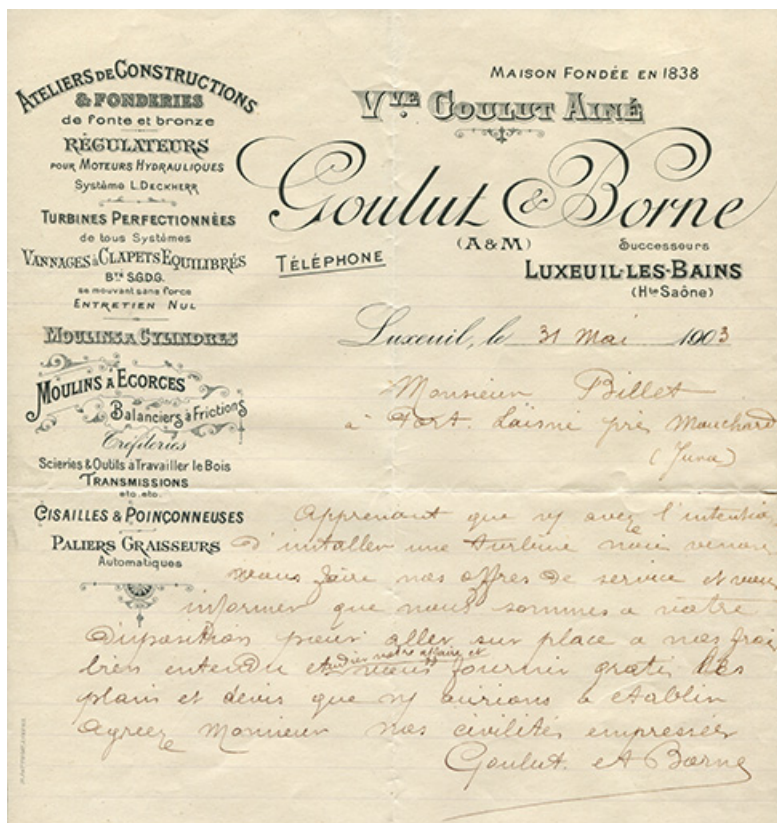 ATELIERS DE CONSTRUCTIONS
& FONDERIES
de fonte et bronze
RÉGULATEURS
POUR MOTEURS HYDRAULIQUES
Système L. DECKHERR
TURBINES PERFECTIONNÉES
de tous Systèmes
VANNAGES à CLAPETS EQUILIBRÉS
BTÉ S.G.D.G.
se mouvant sans force
ENTRETIEN NUL
MOULINS A CYLINDRES
MOULINS A ECORCES
Balanciers à Frictions
Tréfileries
Scieries & Outils à Travailler le Bois
TRANSMISSIONS
etc. etc.
CISAILLES & POINÇONNEUSES
PALIERS GRAISSEURS
Automatiques
MAISON FONDÉE EN 1838
VVE. GOULUT AINÉ
Goulut & Borne
(A & M) Successeurs
TÉLÉPHONE
LUXEUIL-LES-BAINS
(Hte Saône)
Luxeuil, le 31 Mai 1903
Monsieur Billet
à Port. Laisné près Mouchard
(Jura)
Apprenant que vs avez l'intention
d'installer une turbine nous venons
vous faire nos offres de service et vous
informer que nous sommes a votre
disposition pour aller sur place a nos frais
bien entendu etudier votre affaire et vous fournir gratis les
plans et devis que vs aurions a etablir
Agreez Monsieur nos civilités empressées
Goulut et Borne